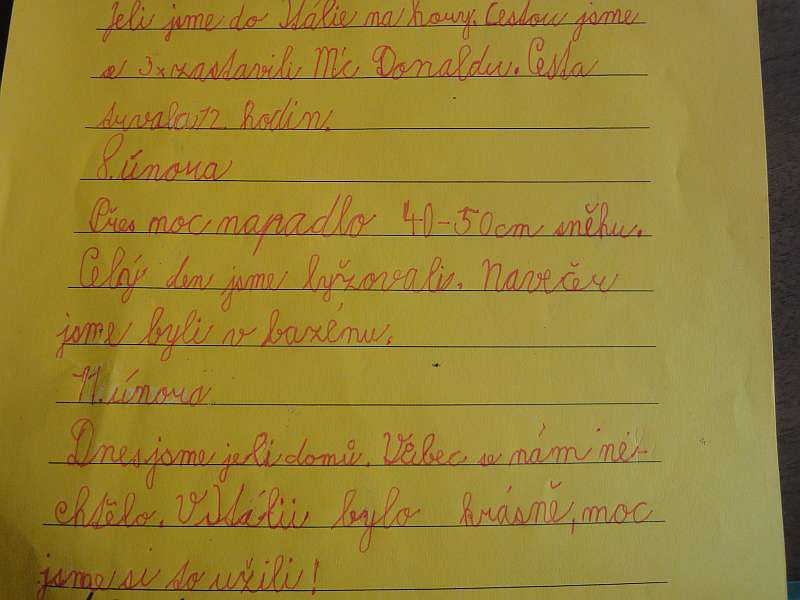 Jeli jsme do Itálie na hory. Cestou jsme
se 3x zastavili Mc Donaldu. Cesta
trvala 12 hodin.
8. února
Přes moc napadlo 40-50cm sněhu.
Celý den jsme lyžovali. Navečer
jsme byli v bazénu.
11. února
Dnes jsme jeli domů. Vůbec se nám ne-
chtělo. V Itálii bylo krásně, moc
jsme si to užili!